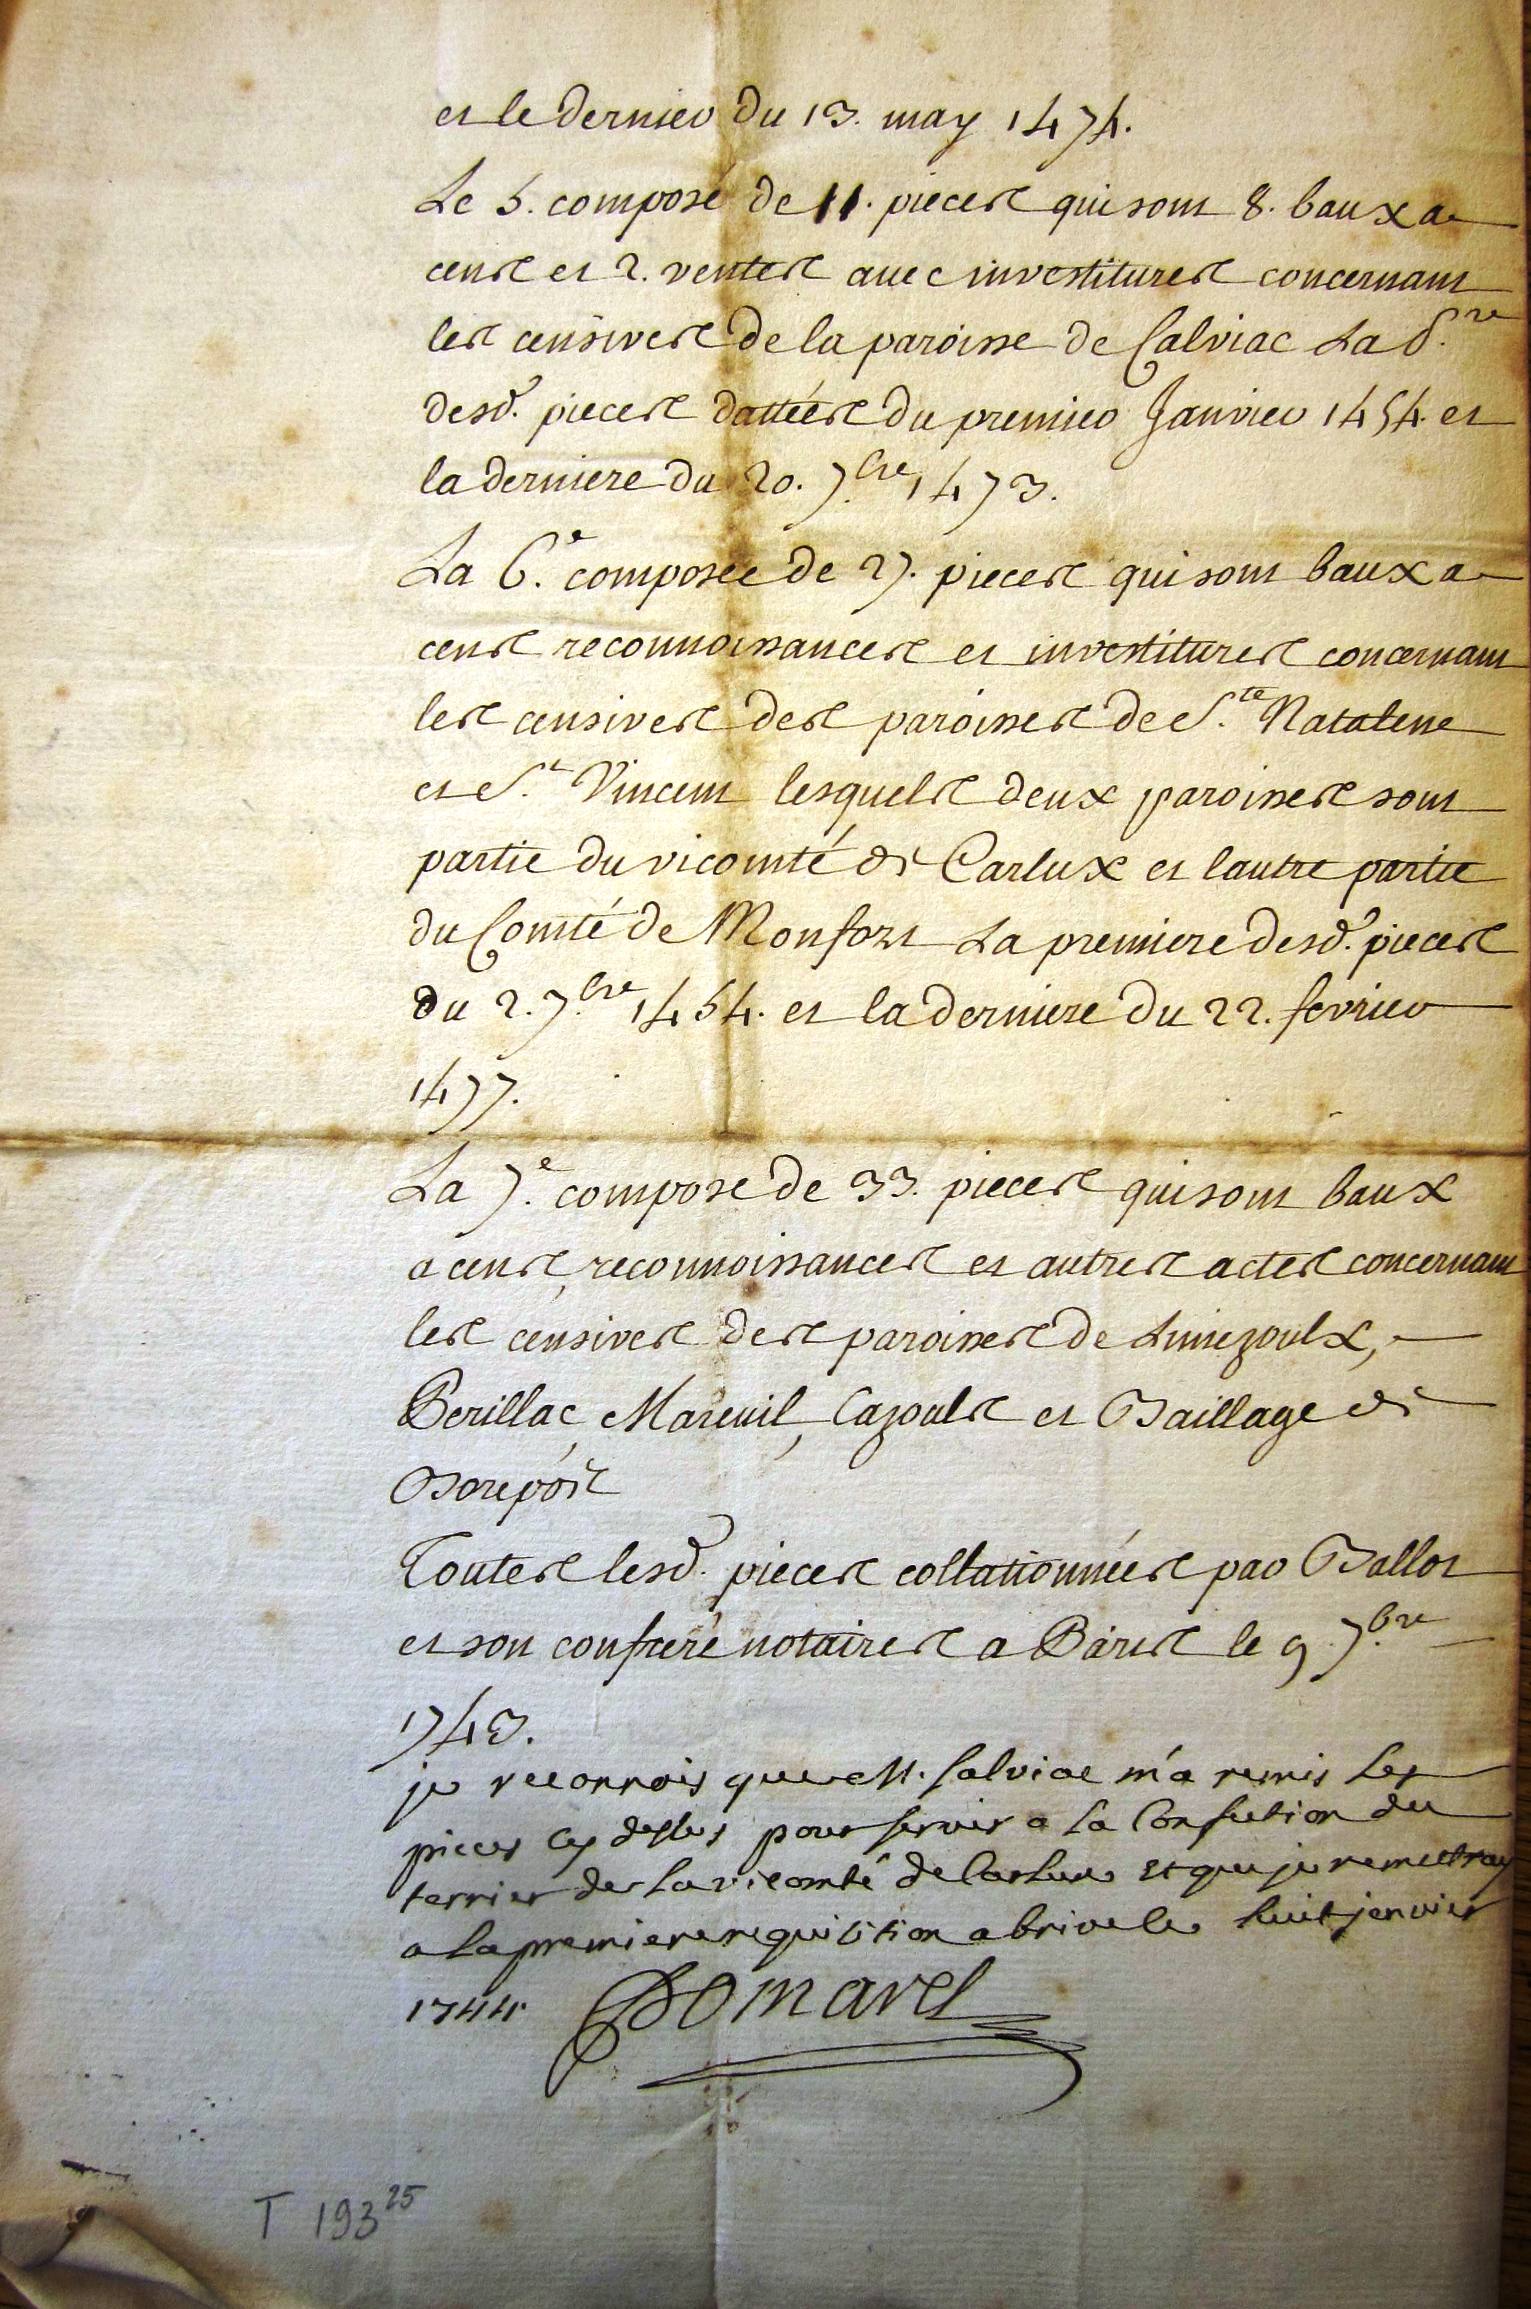 et le dernier du 13. may 1474.
Le 5. composé de 11. pieces qui sont 8. baux a
cens et 2. ventes avec investitures concernant
les censives de la paroisse de Calviac La p.re
desd. pieces dattées du premier Janvier 1454. et
la derniere du 20. 7.bre 1473.
La 6.e composée de 27. pieces qui sont baux a
cens reconnoissances et investitures concernant
les censives des paroisses de S.te Natalene
et S.t Vincent lesquels deux paroisses sont
partie du vicomté de Carlux et lautre partie
du Comté de Monfort La premiere desd. pieces
du 2. 7.bre 1454. et la derniere du 22. fevrier
1477.
La 7.e compose de 33. pieces qui sont baux
a cens, reconnoissances et autres actes concernant
les censives des paroisses de Limezoulx,
Perillac, Mareuil, Cazouls et Baillage de
Toutes lesd. pieces collationnées par Ballot
et son confrere notaires a Paris le 9 7.bre
1743.
je reconnois que M. Salviac m'a remis les
pieces cy dessus pour servir a la Confection du
terrier de la vicomté de Carlux et que je remettray
a la premiere requisition a brive le huit jenvier
1744. Domarel
T 193 25